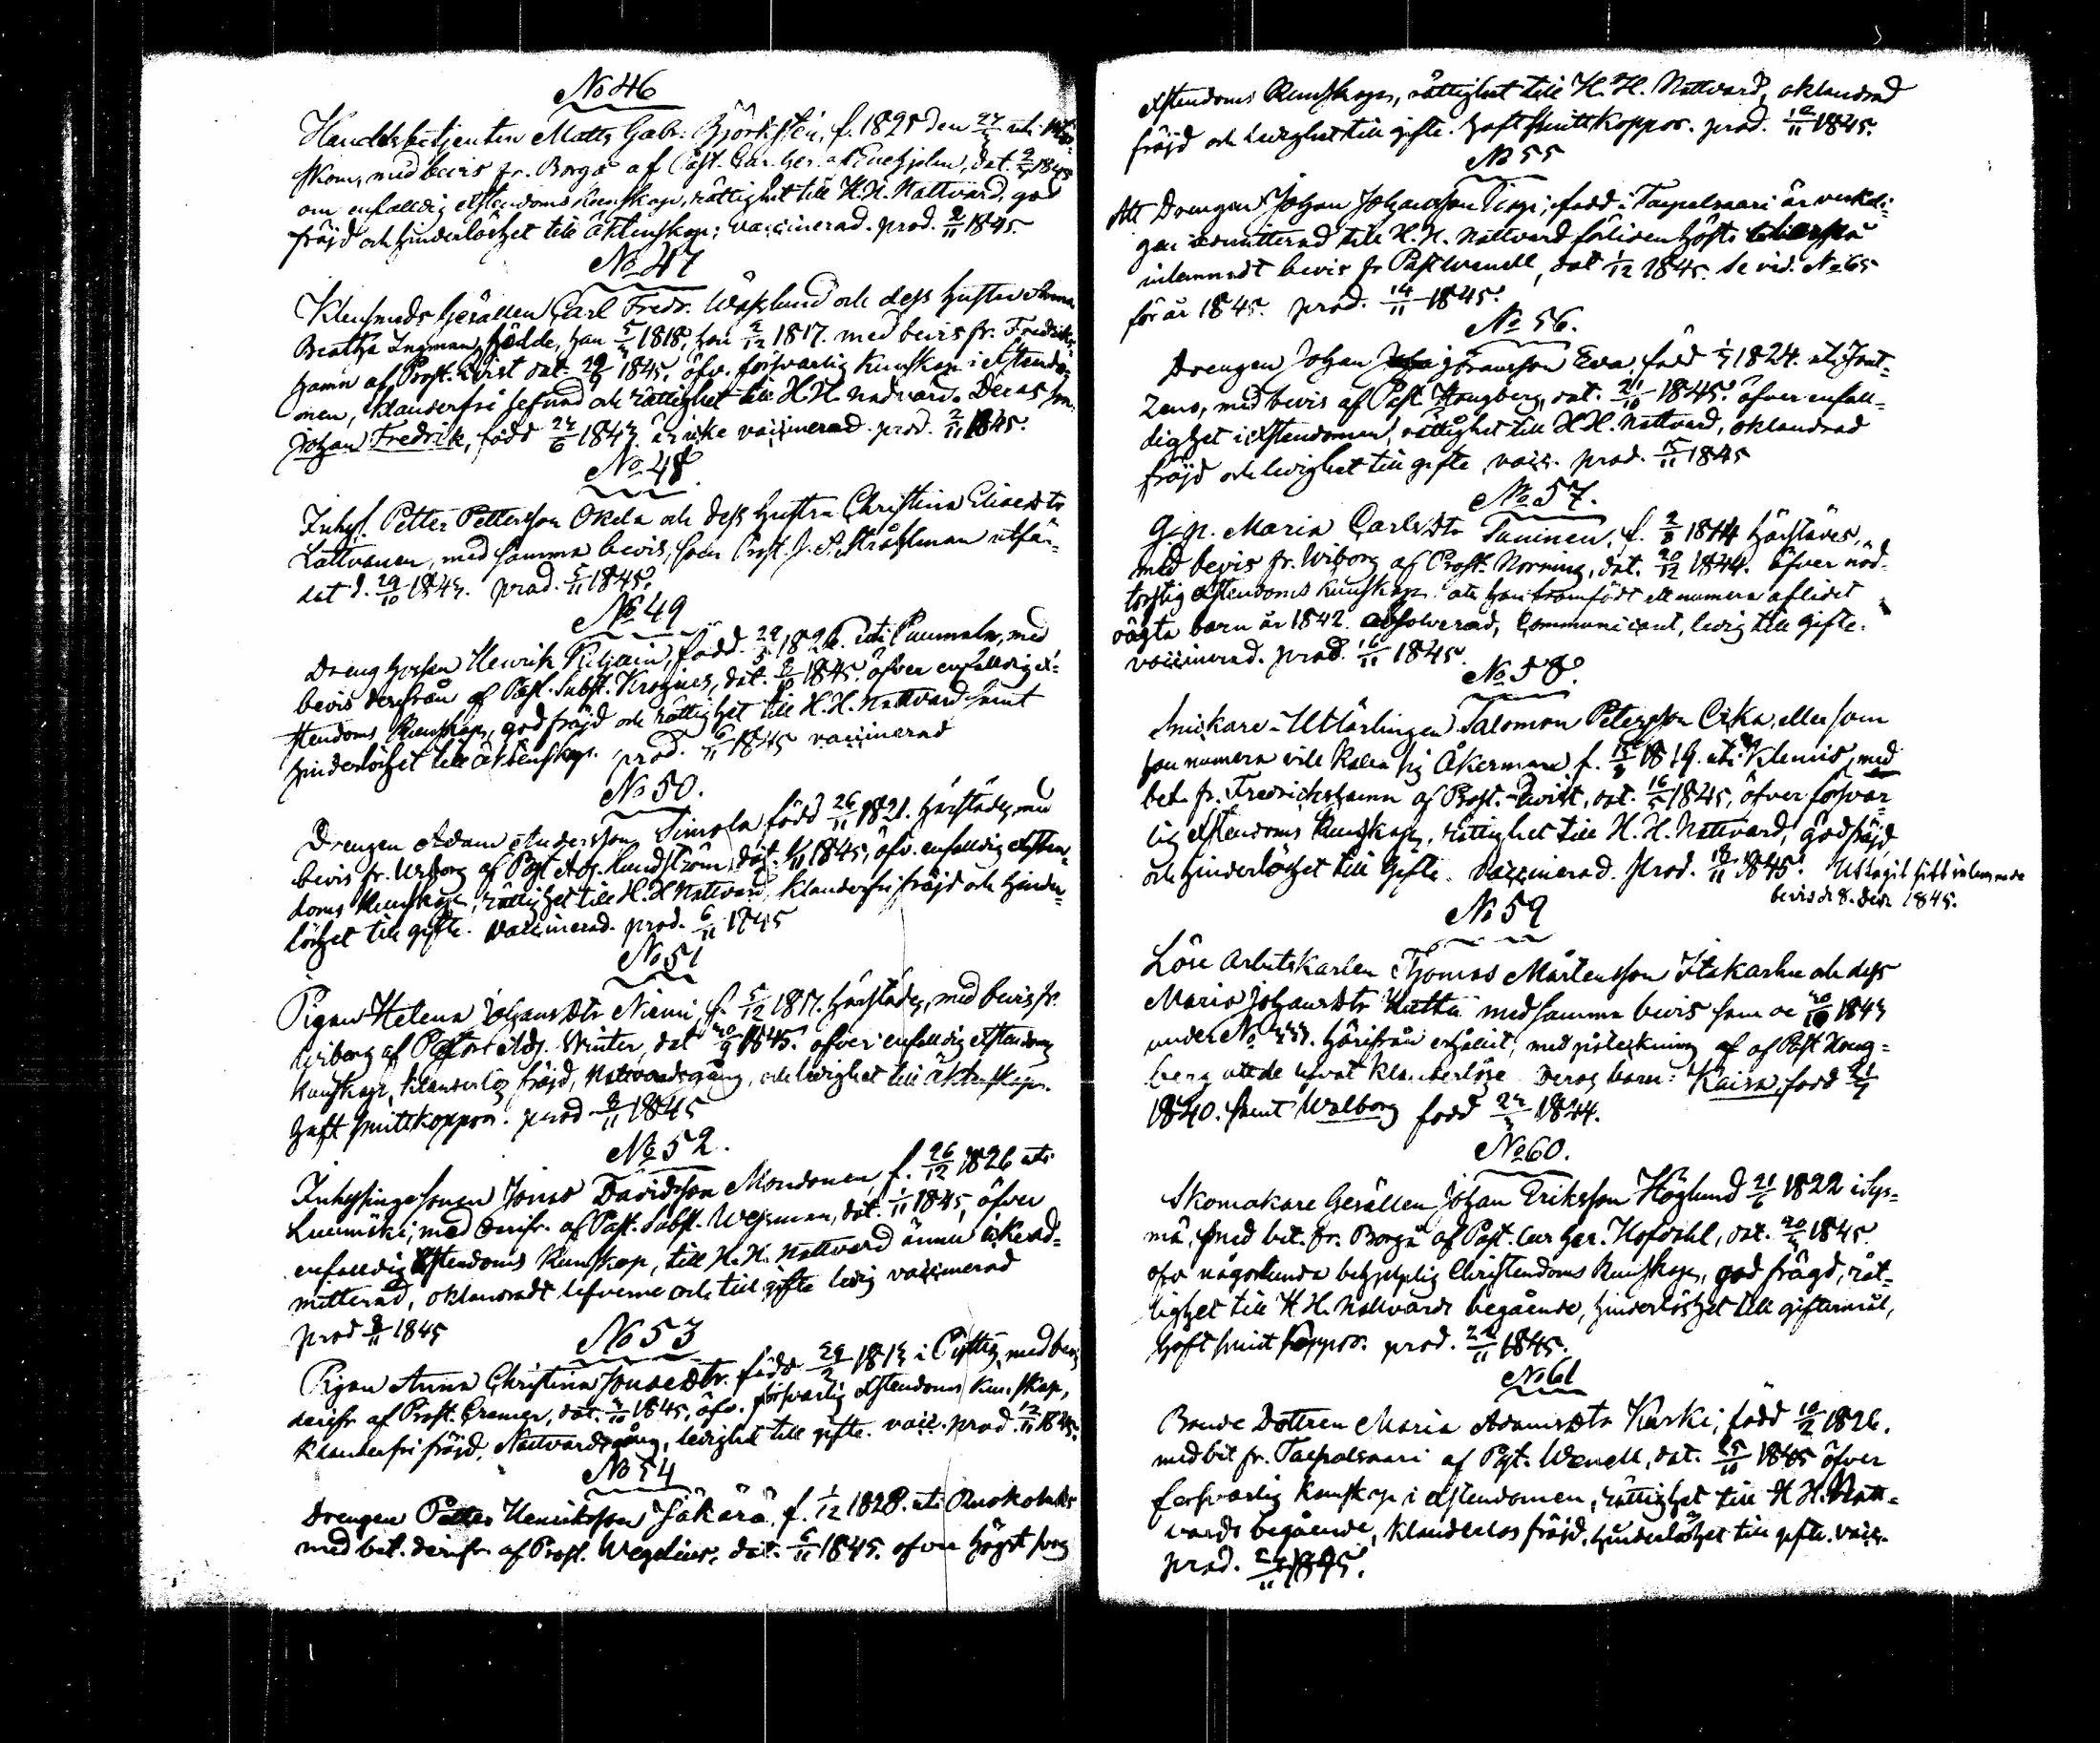 No 46
Handelsbetjenten Matts Gabr. Björkstén, f. 1825 den uti
med bevis fr. Borgå af Past. dat. 1845
om enfalldig Xstendoms kunskap, rättighet till H.H. Nattvard, god
fräjd och hinderlöshet till äktenskap; vaccinerad. prod. 2/11 1845.
No 47
Klensmeds Gesällen Carl Fredr. och dess hustru Anna
Beatha Ingman, födde, han 1818, hon 1817. med bevis fr. Fredriks-
hamn af Prost. dat. 29/9 1845, öfv. försvarlig kunskap i Xstendo-
men, klanderfri och rättighet till H.H. nadvard. Deras son
Johan Fredrik, född 184 är icke vaccinerad. prod. 2/11 1845.
No 48.
Inhys. Petter Pettersson Okela och dess hustru Christina Eliaedtr
Lattvanen, med samma bevis, som Prost. J. S. Stråhlman utfär-
dat d. 29/10 184 . prod. 5/11 1845.
No 49
Dreng Henrik född uti Pummala, med
bevis derifrån af Past. Subst. Krogius, dat. 1845. öfver enfalldig X-
stendoms kunskap, god fräjd och rättighet till H.H. Nattvard samt
hinderlöshet till äktenskap. prod. 6/11 1845 vaccinerad
No 50.
Drengen Adam Andersson Timola född 26/11 1821. härstädes, med
bevis fr. Wiborg af Past. Adj. Lundström, dat. 1/11 1845, öfv. enfalldig Xsten-
doms kunskap, rättighet till H.H. Nattvard, klanderfri fräjd och hinder-
löshet till gifte. Vaccinerad. prod. 6/11 1845
No 51
Pigan Helena Johansdtr Niemi f. 5/12 1817. härstädes, med bevis fr.
Wiborg af Pastors Adj. Winter, dat 1845. öfver enfalldig Xstendoms
kunskap, klanderlös fräjd, Nattvardsgång, och ledighet till äktenskap.
haft smittkoppor. prod 8/11 1845
No 52.
Inhysinge sonen Jonas Davidsson Mondonen, f. 26/12 1826 uti
Luumäki, med derifr. af Past. Subst. Wegman, dat. 1/11 1845, öfver
enfalldig Xstendoms kunskap, till H.H. Nattvard ännu icke ad-
mitterad, oklandradt lefverne och till gifte ledig vaccinerad
prod 8/11 1845
No 53
Pigan Anna Christina Jonaedtr. född i Pyttis, med bevis
derifr. af Prost. Cremer, dat. 1845, öfv. försvarlig Xstendoms kunskap,
klanderfri fräjd, Nattvardsgång, ledighet till gifte. vacc. prod. 12/11 1845.
No 54
Drengen Petter Henriksson Jäkärä, f. 1/12 1828. uti Ruokolaks
med bet. derifr. af Prost. Wegelius, dat. 6/11 1845. öfver högst svag
Xstendoms Kunskap, rättighet till H.H. Nattvard, oklandrad
fräjd och ledighet till gifte. haft smittkoppor. prod. 12/11 1845.
No 55
Att Drengen Johan Johansson född i Taipalsaari är verkli-
gen admitterad till H.H. Nattvard förliden höst
inlemnadt bevis fr Past Wenell, dat 1/12 1845. Se vid. No 65
för år 1845. prod. 14/11 1845.
No 56.
Drengen Johan Göransson Eva, född 1824. uti Jout-
zeno, med bevis af Past. Hougberg, dat. 21/10 1845. öfver enfall-
dighet i Xstendomen, rättighet till H.H. Nattvard, oklandrad
fräjd och ledighet till gifte, vacc. prod. 15/11 1845
No 57.
Maria Carlsdtr f. härstädes,
med bevis fr. Wiborg af Prost. Norring, dat. 20/12 1844. öfver nöd-
torftig Xstendoms kunskap. att hon framfödt ett numera aflidet
oägta barn år 1842. absolverad, Communicant, ledig till gifte.
vaccinerad. prod. 16/11 1845.
No 58.
Snickare-Utlärlingen Salomon Petersson Cika, eller som
han numera vill kalla sig Åkerman f. 1819. uti Klemis, med
bet. fr. Fredrichshamn af Prost. dat. 16/5 1845, öfver försvar-
lig Xstendoms kunskap, rättighet till H.H. Nattvard, god fräjd
och hinderlöshet till Gifte. Vaccinerad. Prod. 18/11 1845. Uttagit sitt inlemnade
bevis d 8. Decr 1845.
No 59
Löse Arbetskarlen Thomas Mårtensson Itakarhu och dess
Maria Johansdtr Hutta med samma bevis som de 184
under No härifrån erhållit, med påteckning af af Past Houg-
berg att de lefvat klanderlöse Deras barn: Kaisa, född
1840. samt Walborg född 1844.
No 60.
Skomakare Gesällen Johan Eriksson Höglund 21/6 1822 i Sys-
mä, med bet. fr. Borgå af Past. Cur Ger. Hofdahl, dat. 1845.
öfv någorlunda behjelplig Christendoms kunskap, god frägd, rät-
tighet till H.H. Nattvards begående, hinderlöshet till giftermål,
haft smittkoppor. prod. 1845.
No 61
Bonde Dottren Maria Adamsdtr Kurki, född 10/2 1826.
med bet fr. Taipalsaari af Pst. Wenell, dat. 25/10 1845 öfver
försvarlig kunskap i Xstendomen, rättighet till H.H. Natt-
vards begående, klanderlös fräjd, hinderlöshet till gifte. vacc.
prod. 1845.